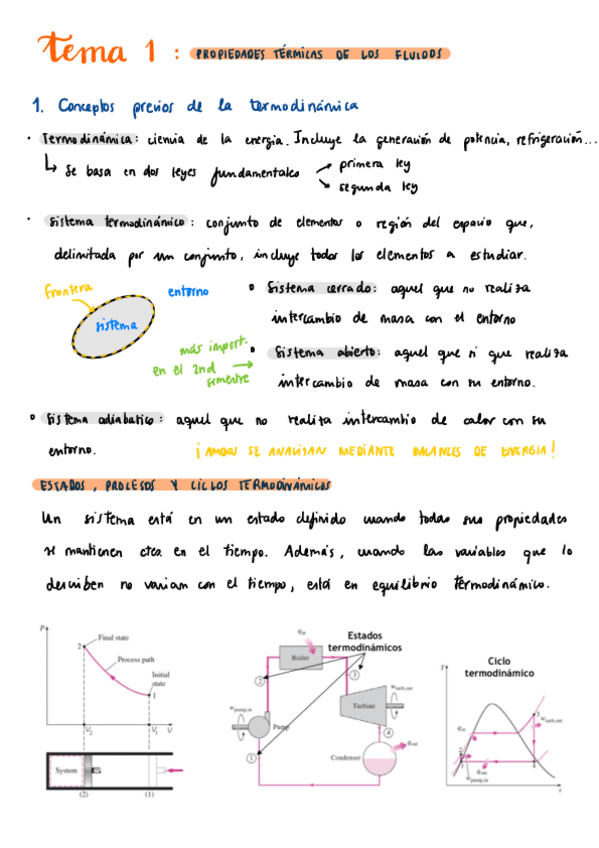 Tema 1 : PROPIEDADES TÉRMICAS DE LOS FLUIDOS
1. Conceptos previos de la termodinámica
· Termodinámica: ciencia de la energía. Incluye la generación de potencia, refrigeración...
↳ Se basa en dos leyes fundamentales
primera ley
segunda ley
· Sistema termodinámico: conjunto de elementos o región del espacio que,
delimitada por un conjunto, incluye todos los elementos a estudiar.
frontera
entorno
sistema
o Sistema cerrado: aquel que no realiza
intercambio de masa con el entorno
más import.
en el 2nd
semestre
o Sistema abierto: aquel que si que realiza
intercambio de masa con su entorno.
o Sistema adiabatico: aquel que no realiza intercambio de calor con su
entorno.
¡AMBOS SE ANALIZAN MEDIANTE BALANCES DE ENERGIA!
ESTADOS, PROCESOS Y CICLOS TERMODINÁMICOS
Un sistema está en un estado definido cuando todas sus propiedades
se mantienen ctes. en el tiempo. Además, cuando las variables que lo
describen no varian con el tiempo, está en equilibrio termodinámico.
P
2
Final state
Process path
Initial
state
1
V2
V1
V
System
(2)
(1)
qin
Boiler
Estados
termodinámicos
2
3
wpump,in
Pump
Turbine
wturb,out
4
1
Condenser
qout
Ciclo
termodinámico
T
3
wturb,out
qin
2
1
4
qout
wpump,in
s